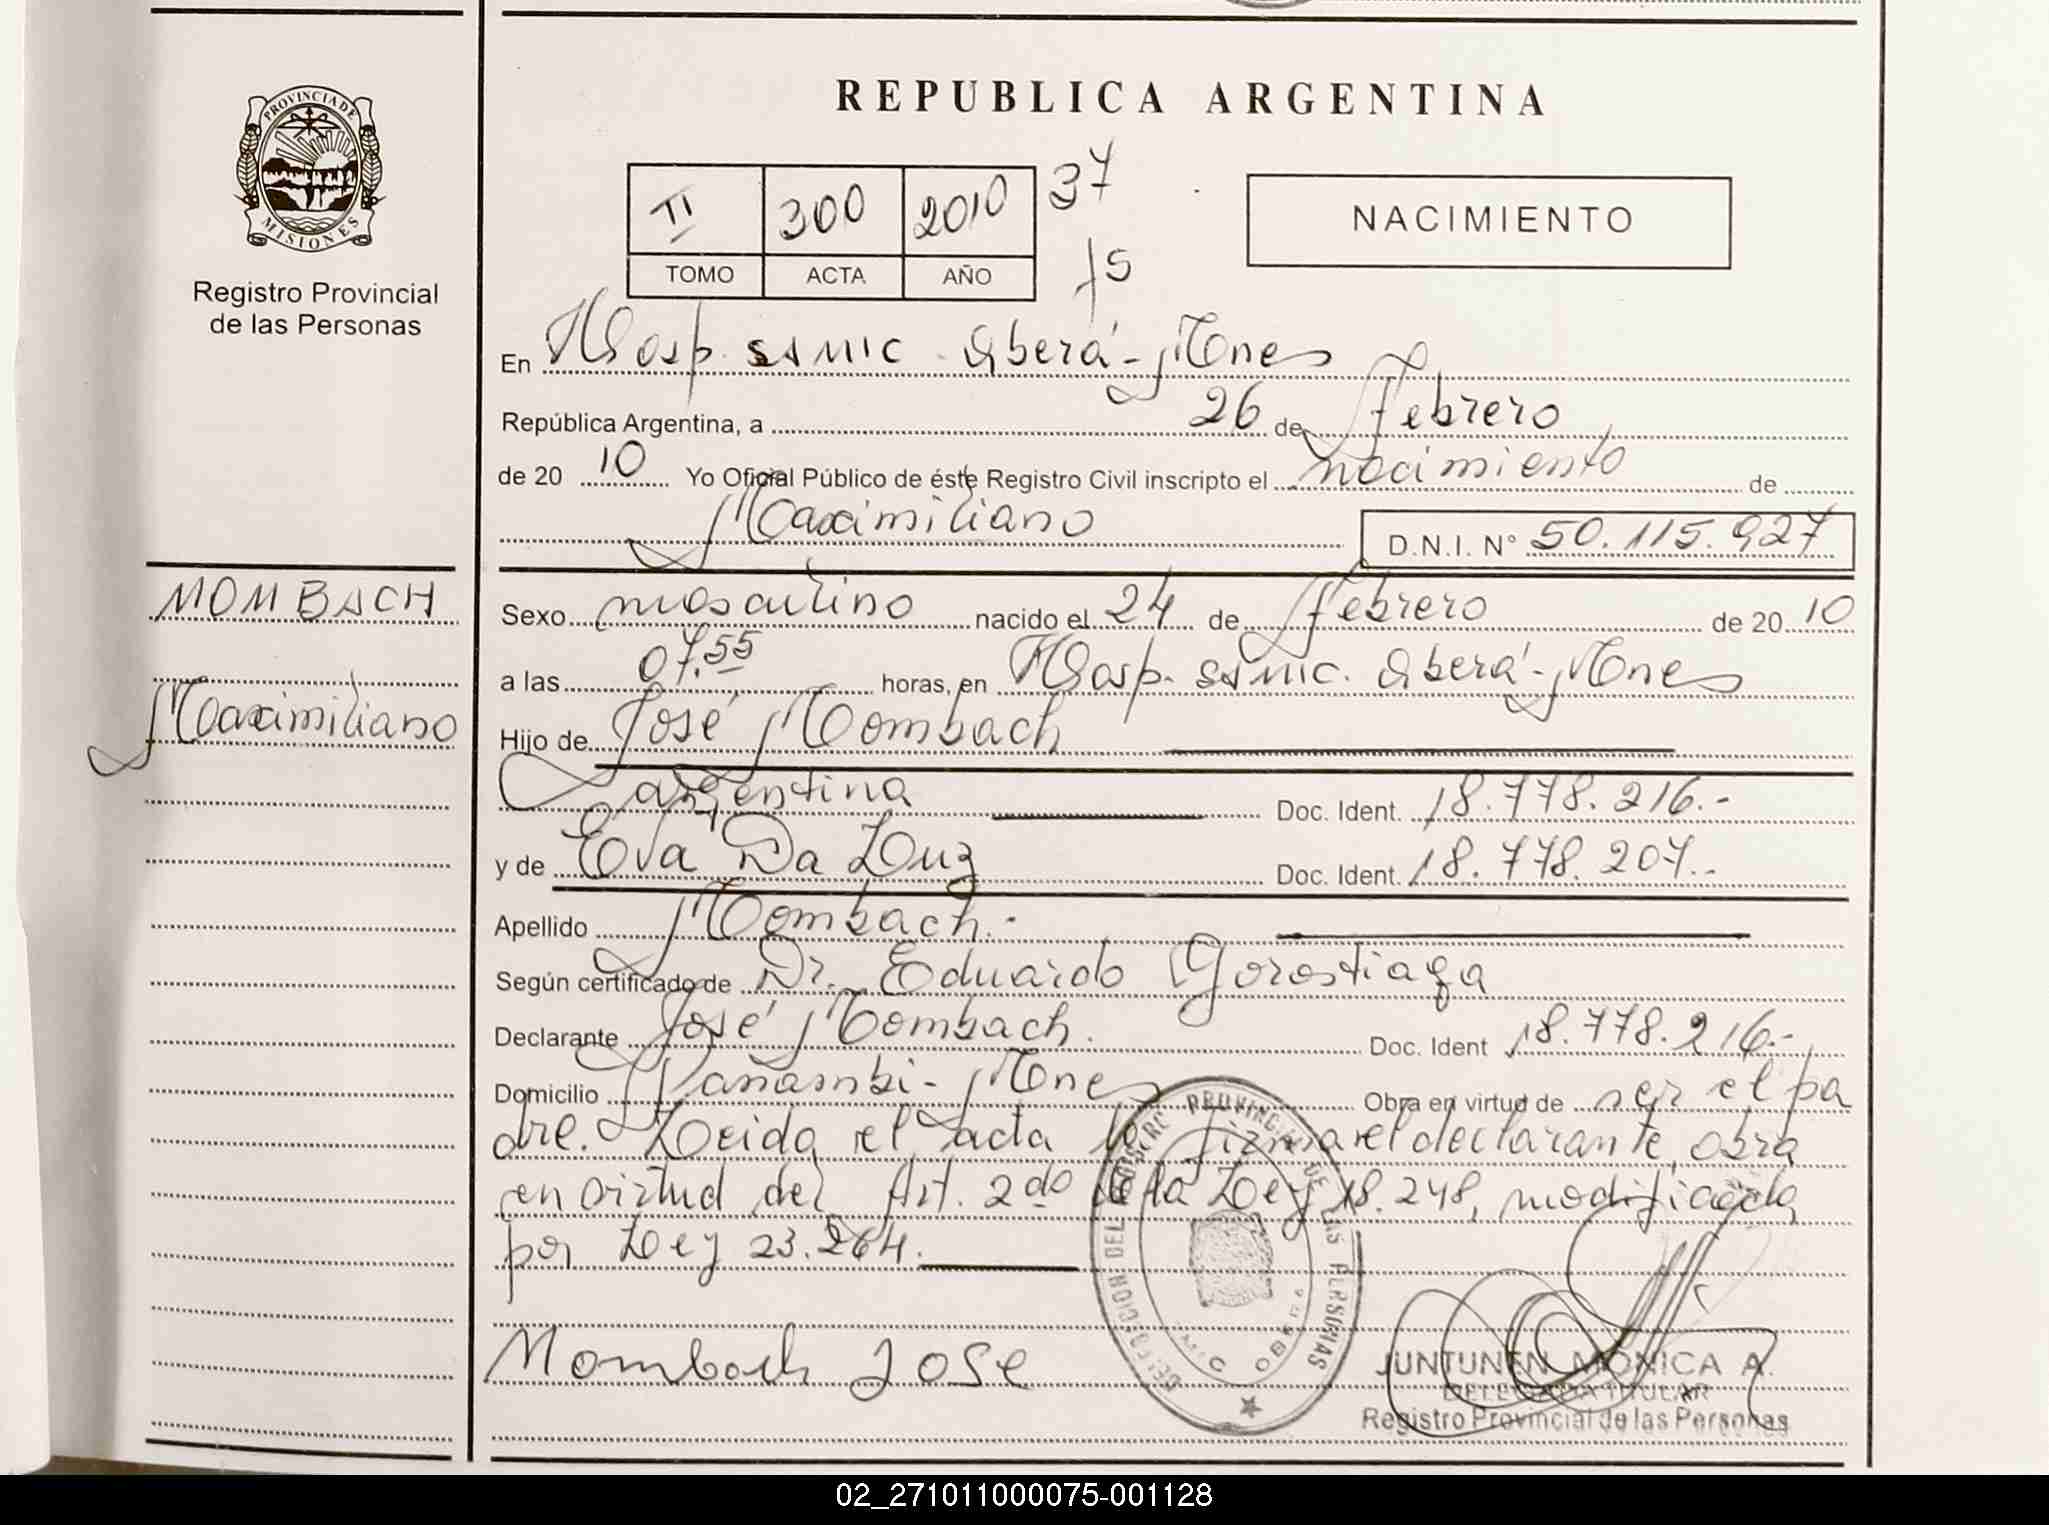 REPUBLICA ARGENTINA
PROVINCIA DE
MISIONES
Registro Provincial
de las Personas
II 300 2010 37
TOMO ACTA AÑO
NACIMIENTO
En Hosp. SAMIC Oberá - Mnes
República Argentina, a 26 de febrero
de 20 10 Yo Oficial Público de éste Registro Civil inscripto el nacimiento de
Maximiliano D.N.I. N° 50.115.927
MOMBACH
Maximiliano
Sexo masculino nacido el 24 de febrero de 20 10
a las 07.55 horas, en Hosp. SAMIC. Oberá - Mnes
Hijo de José Mombach
Argentina Doc. Ident. 18.778.216.-
y de Eva Da Luz Doc. Ident. 18.778.207.-
Apellido Mombach.-
Según certificado de Dr. Eduardo Gorostiaga
Declarante José Mombach. Doc. Ident 18.778.216.-
Domicilio Panambi - Mnes Obra en virtud de ser el pa
dre. Leida el acta la firma el declarante, obra
en virtud del Art. 2do de la Ley 18.248, modificada
por Ley 23.264.
Mombach Jose
DELEGACION DEL REGISTRO PROVINCIAL DE LAS PERSONAS
OBERA
JUNTUNEN MONICA A.
DELEGADA TITULAR
Registro Provincial de las Personas
02_271011000075-001128